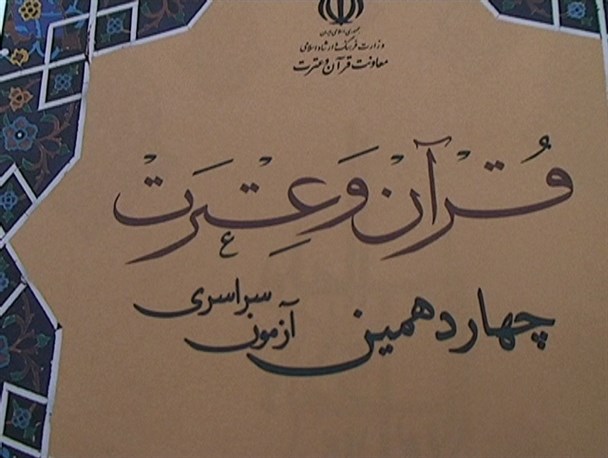 جمهوری اسلامی ایران
وزارت فرهنگ و ارشاد اسلامی
معاونت قرآن و عترت
قُرآن وَ عِترت
چهاردهمین
آزمون
سراسری